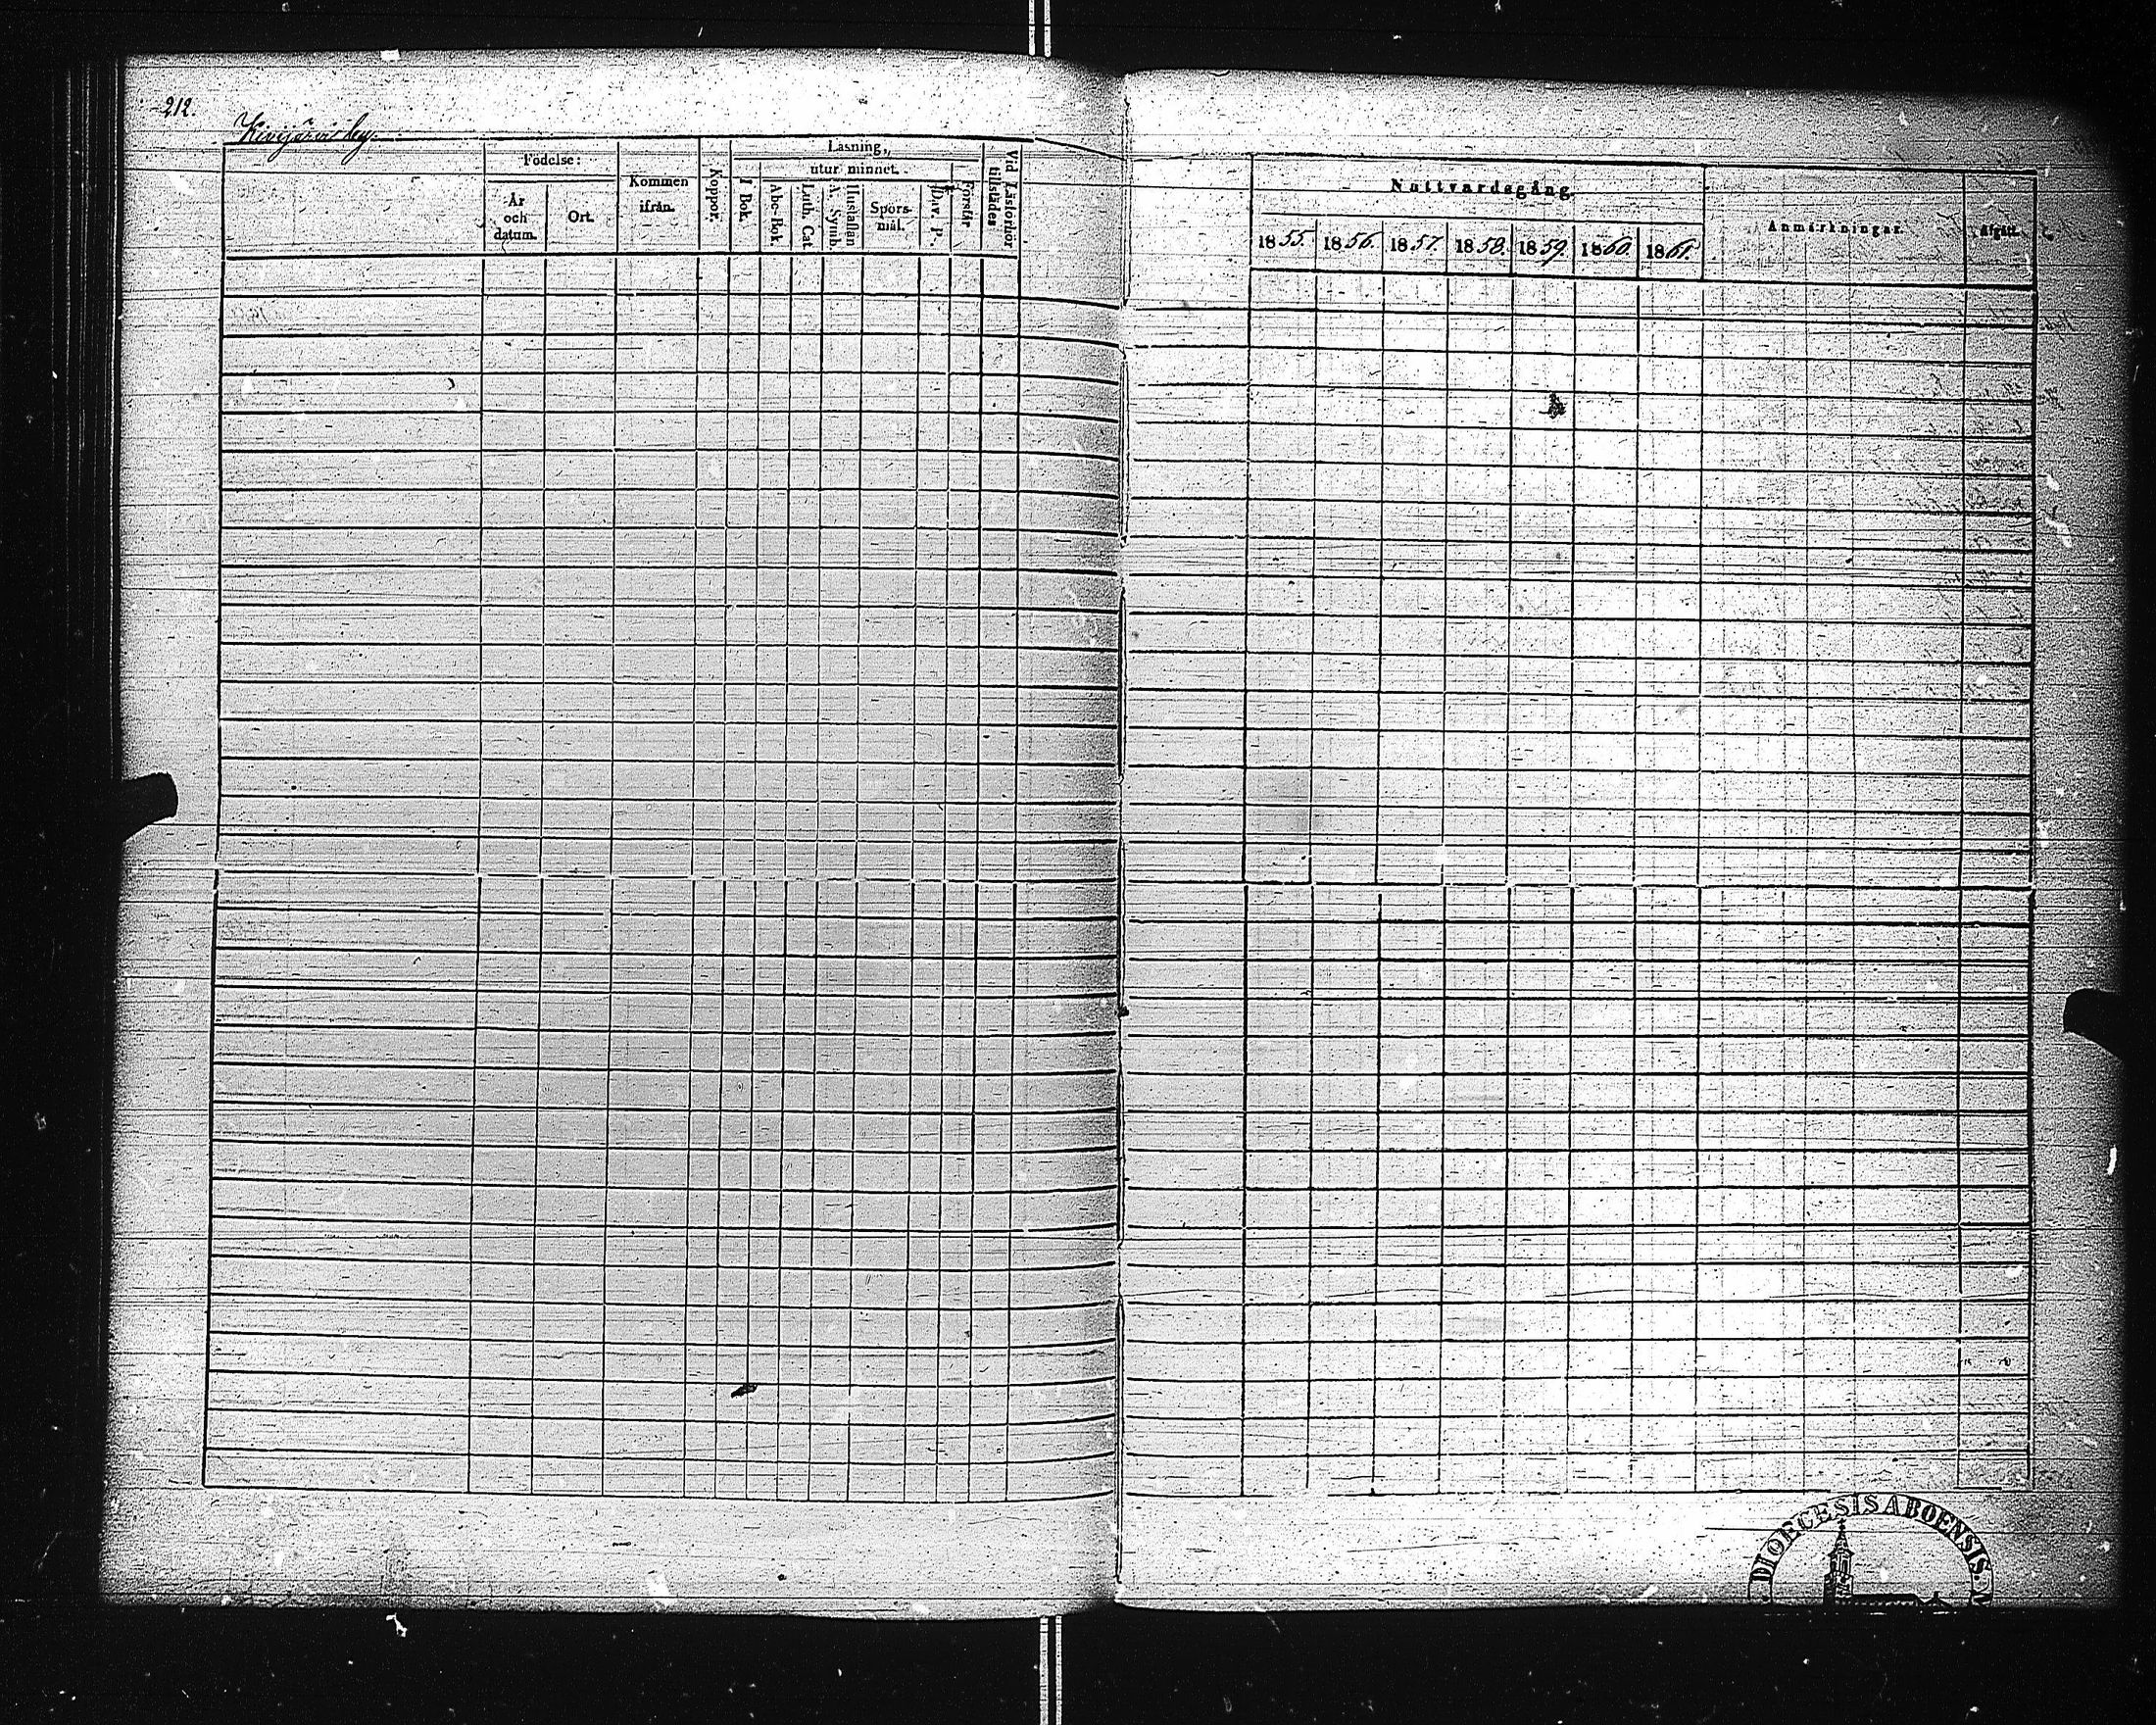 212.
Kivijärvi by.
Födelse:
År och datum.
Ort.
Kommen ifrån.
Koppor.
Läsning,
utur minnet.
I Bok.
Abc-Bok.
Luth. Cat.
Hustaflan A. Symb.
Spörs-mål.
Dav. P.
Förstår
Vid Läsförhör tillstädes
Nattvardsgång.
1855.
1856.
1857.
1858.
1859.
1860.
1861.
Anmärkningar.
Afgått.
DIOECESIS ABOENSIS.